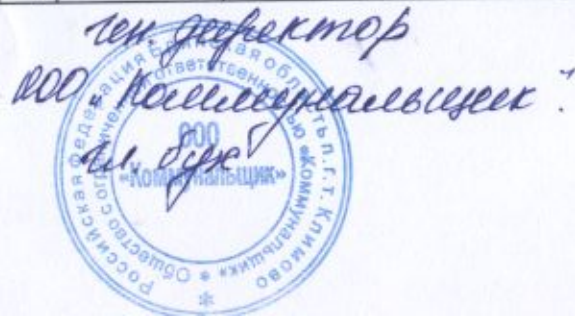 ген. директор
ООО „Коммунальщик".
гл. бух
Российская Федерация Брянская область п.г.т. Климово
Общество с ограниченной ответственностью «Коммунальщик»
ООО
«Коммунальщик»